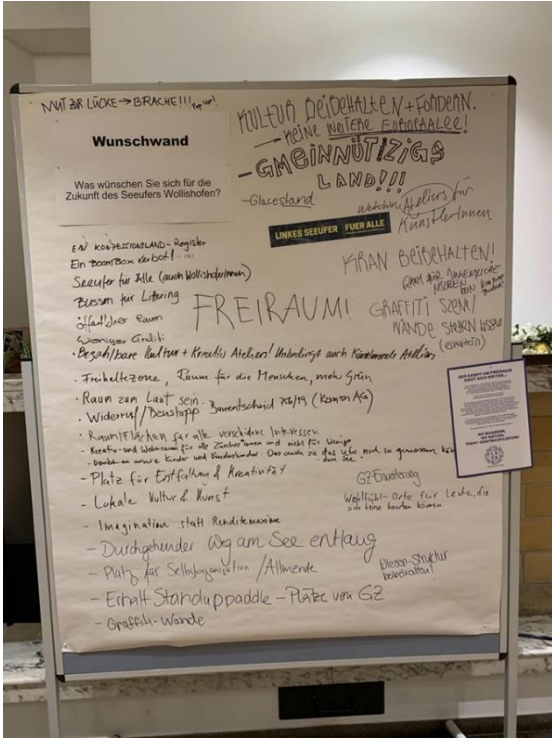 MUT ZUR LÜCKE → BRACHE!!! Pop up!
Wunschwand
Was wünschen Sie sich für die
Zukunft des Seeufers Wollishofen?
KULTUR BEIBEHALTEN + FÖRDERN.
→ KEINE WEITERE EUROPAALLEE!
- GMEINNÜTZIGS
LAND!!!
- Glacestand
Weiterhin Ateliers für
KünstlerInnen
LINKES SEEUFER FUER ALLE
KRAN BEIBEHALTEN!
EIN KONZESSIONSLAND-Register
Ein BoomBox Verbot!
Seeufer für Alle (auch WollishoferInnen)
Bussen für Litering
öffentlicher Raum
Weniger Graliti
FREIRAUM!
RAUM FÜR JUGENDLICHE
GRAFFITI SZENE/
WÄNDE STEHEN LASSEN
(erweitern)
• Bezahlbare Kultur + Kreativ Atelier! Unbedingt auch Künstlerische Atelier,
• Freihaltezone, Raum für die Menschen, mehr Grün
• Raum zum Laut sein.
• Widerruf // Baustopp Bauentscheid 756/19 (Kesmon AG)
• Raum/Flächen für alle verschidene Interessen
- Kreativ- und Wohnraum für alle Zürcher*innen und nicht für Wenige
- Denkt an unsere Kinder und Kindeskinder.
- Platz für Entfaltung & Kreativität
GZ Erweiterung
- Lokale Kultur & Kunst
Wohlfühl-Orte für Leute, die
sich keine leisten können
- Imagination statt Renditemaxime
- Durchgehender Weg am See entlang
- Platz für Selbstorganisation / Allmende
Wiesen-Struktur
beibehalten!
- Erhalt Standuppaddle - Plätze von GZ
- Graffiti-Wände